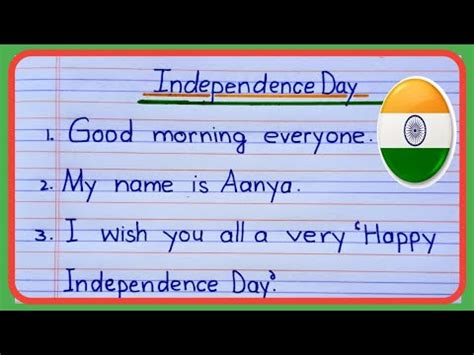 Independence Day
1. Good morning everyone.
2. My name is Aanya.
3. I wish you all a very 'Happy
Independence Day'.